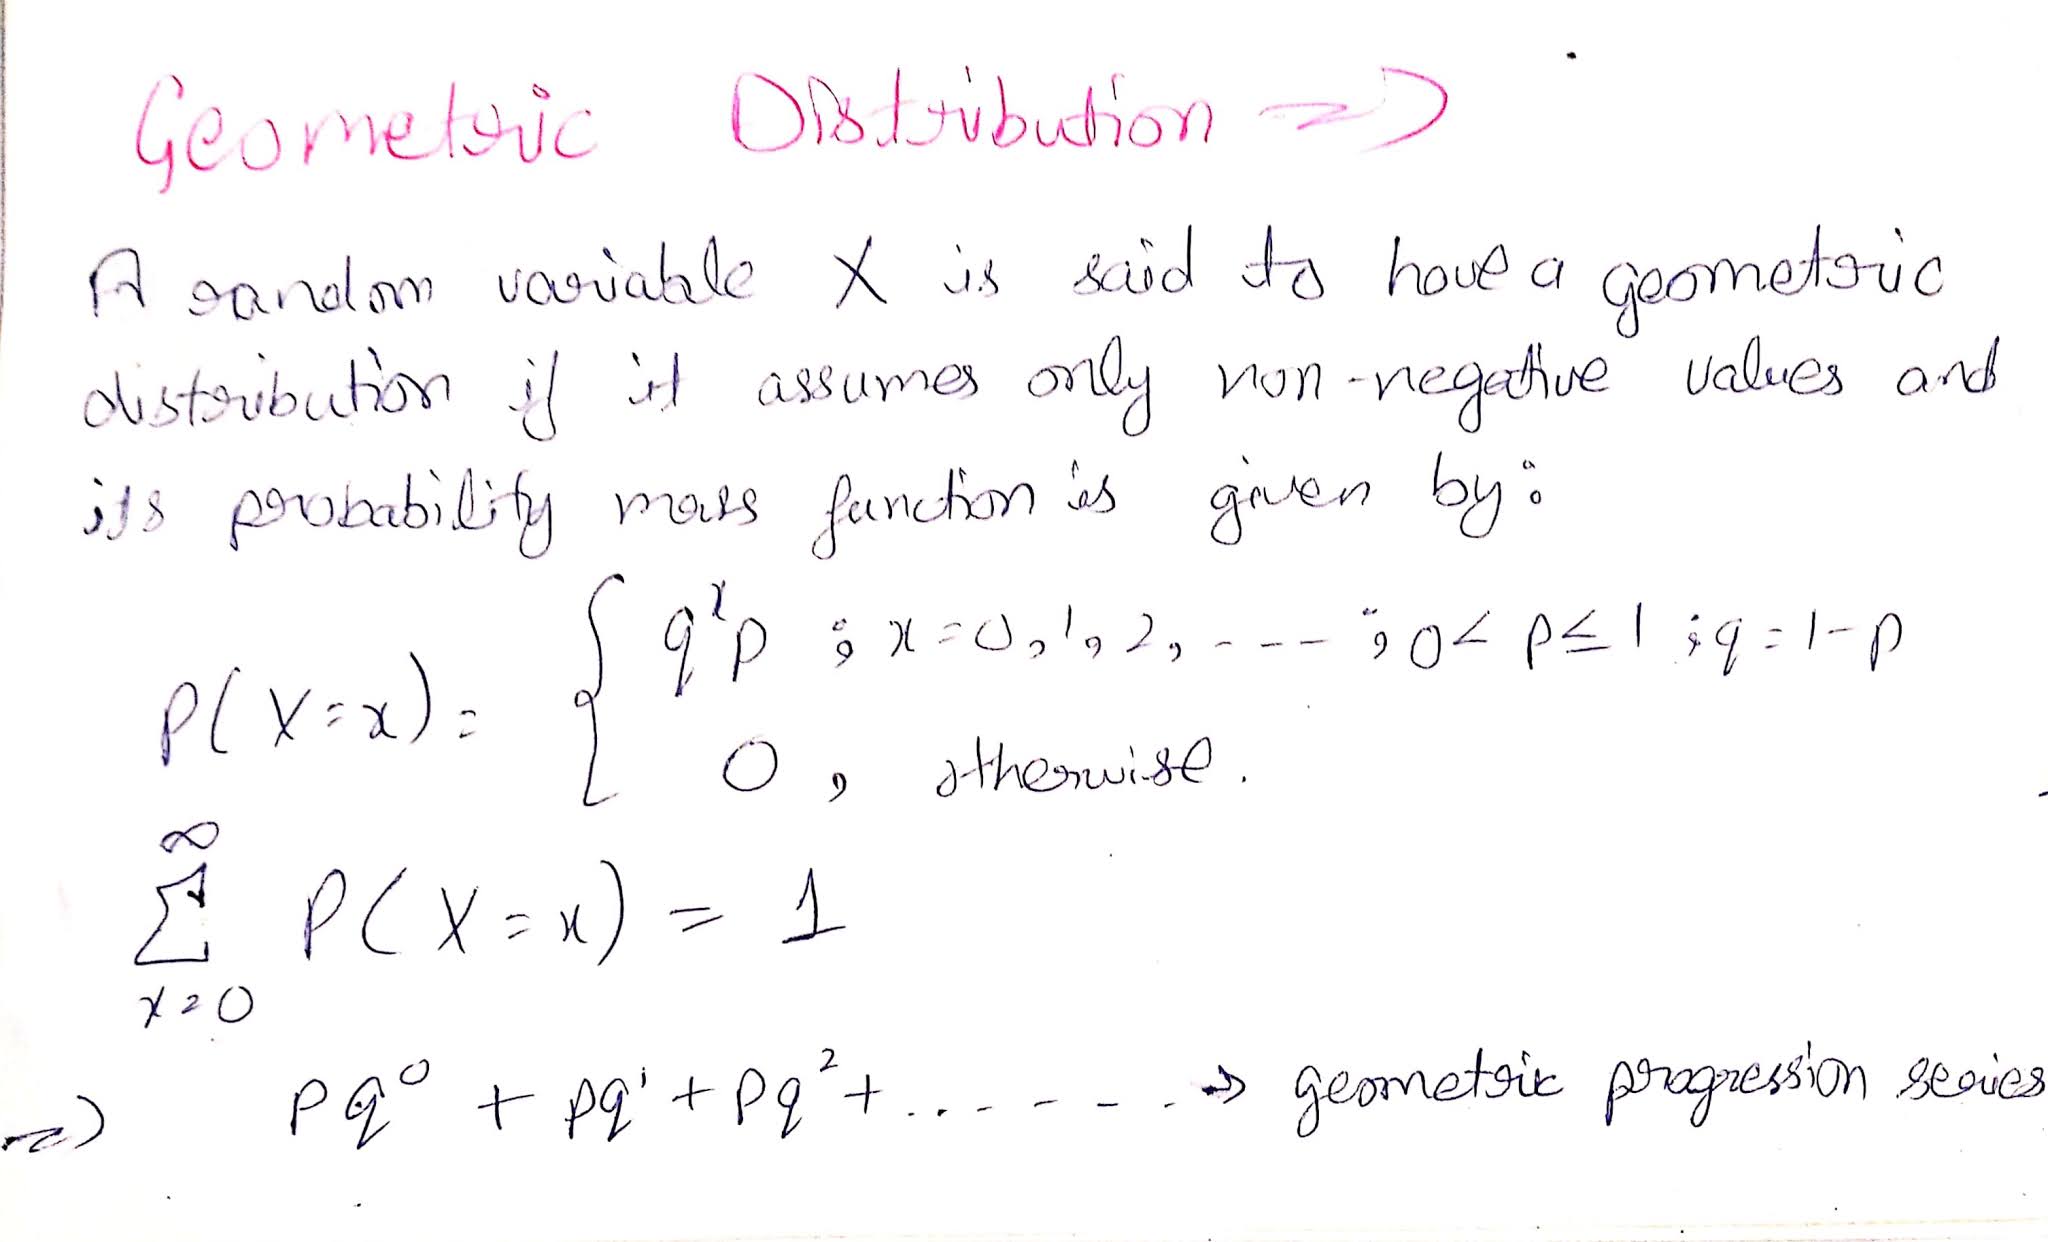 Geometric Distribution ⇒
A random variable X is said to have a geometric
distribution if it assumes only non-negative values and
its probability mass function is given by:
P(X=x) = { q^x p ; x=0,1,2, ---- ; 0< p≤1 ; q=1-p
0, otherwise.
∞
Σ P(X=x) = 1
x=0
⇒ pq^0 + pq^1 + pq^2 + ..----. → geometric progression series